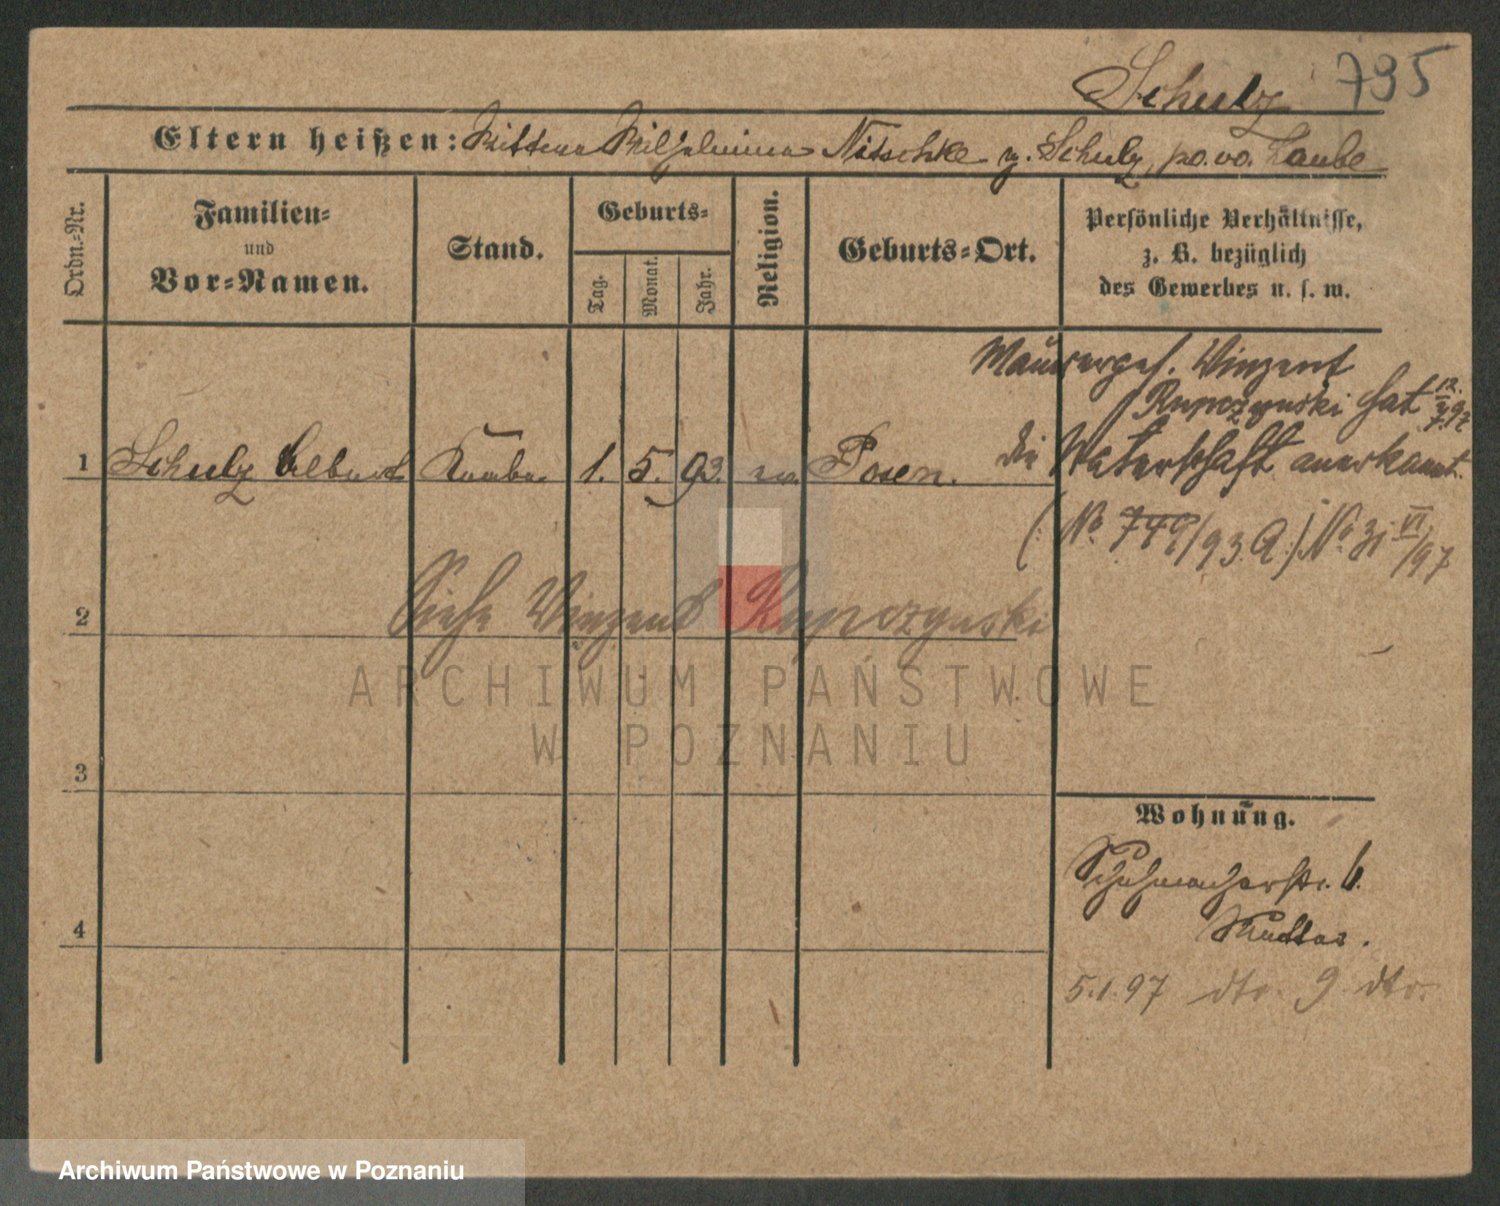 Schulz 795
Eltern heißen: Wittwe Wilhelmina Nitschke g. Schulz,
Ordn.-Nr.
Familien-
und
Vor-Namen.
Stand.
Geburts-
Tag.
Monat.
Jahr.
Religion.
Geburts-Ort.
Persönliche Verhältnisse,
z. B. bezüglich
des Gewerbes u. s. w.
Maurerges. Vinzent
Rupczynski hat 12.
7.97
die Vaterschaft anerkannt.
1 Schulz Albert Knabe 1. 5. 93. ev. Posen.
(No. 749/93 A.) No. 31 VI/97
2 Siehe Vinzent Rupczynski
3
4
Wohnung.
Schuhmacherstr. 6.
Mutter.
5.1.97 dto. 9 dto.
ARCHIWUM PAŃSTWOWE
W POZNANIU
Archiwum Państwowe w Poznaniu